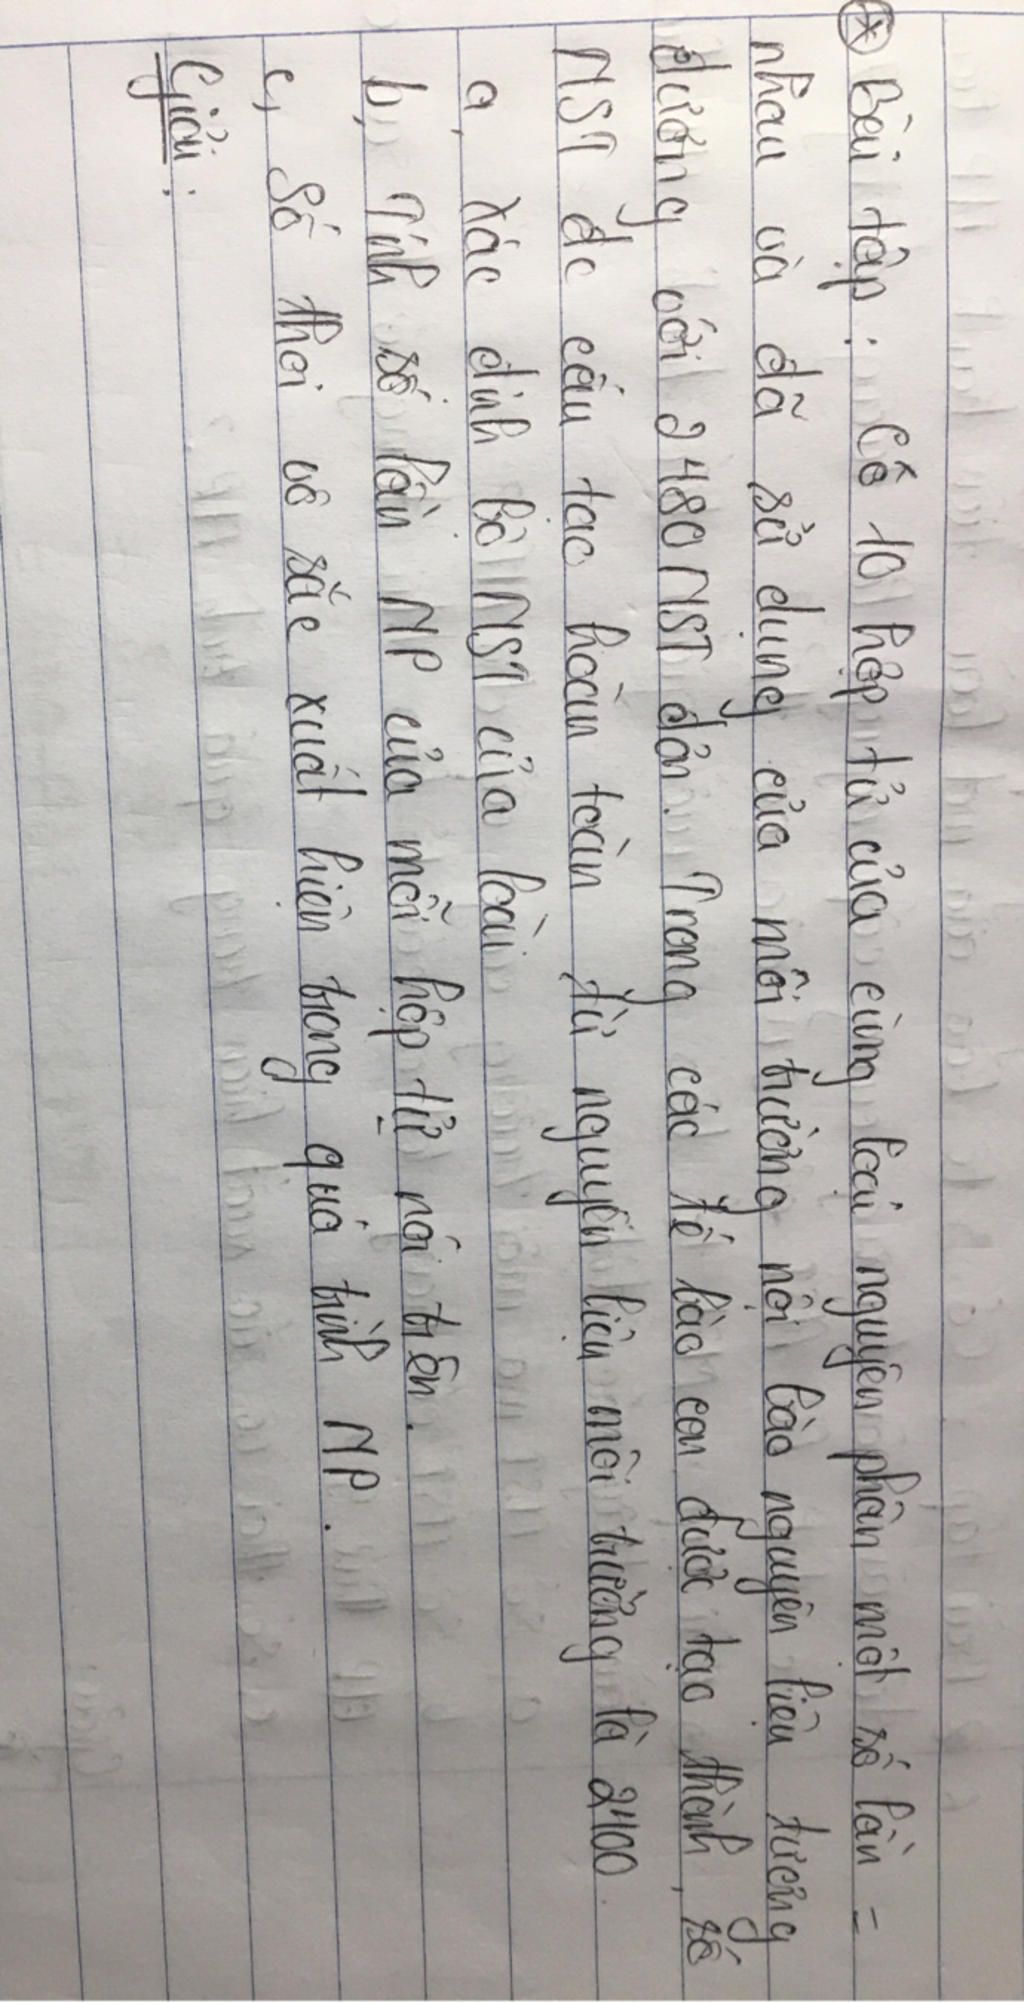 (*) Bài tập: Có 10 hợp tử của cùng loài nguyên phân một số lần =
nhau và đã sử dụng của môi trường nội bào nguyên liệu tương
đương với 2480 NST đơn. Trong các tế bào con được tạo thành, số
NST đc cấu tạo hoàn toàn từ nguyên liệu môi trường là 2400
a, Xác định bộ NST của loài
b, Tính số lần NP của mỗi hợp tử nói trên.
c, Số thoi vô sắc xuất hiện trong quá trình NP.
Giải: